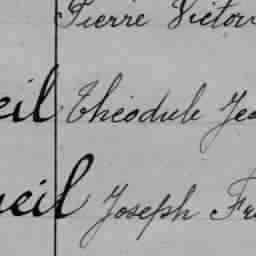 Pierre Victor
eil Théodule Je
ueil Joseph Fra